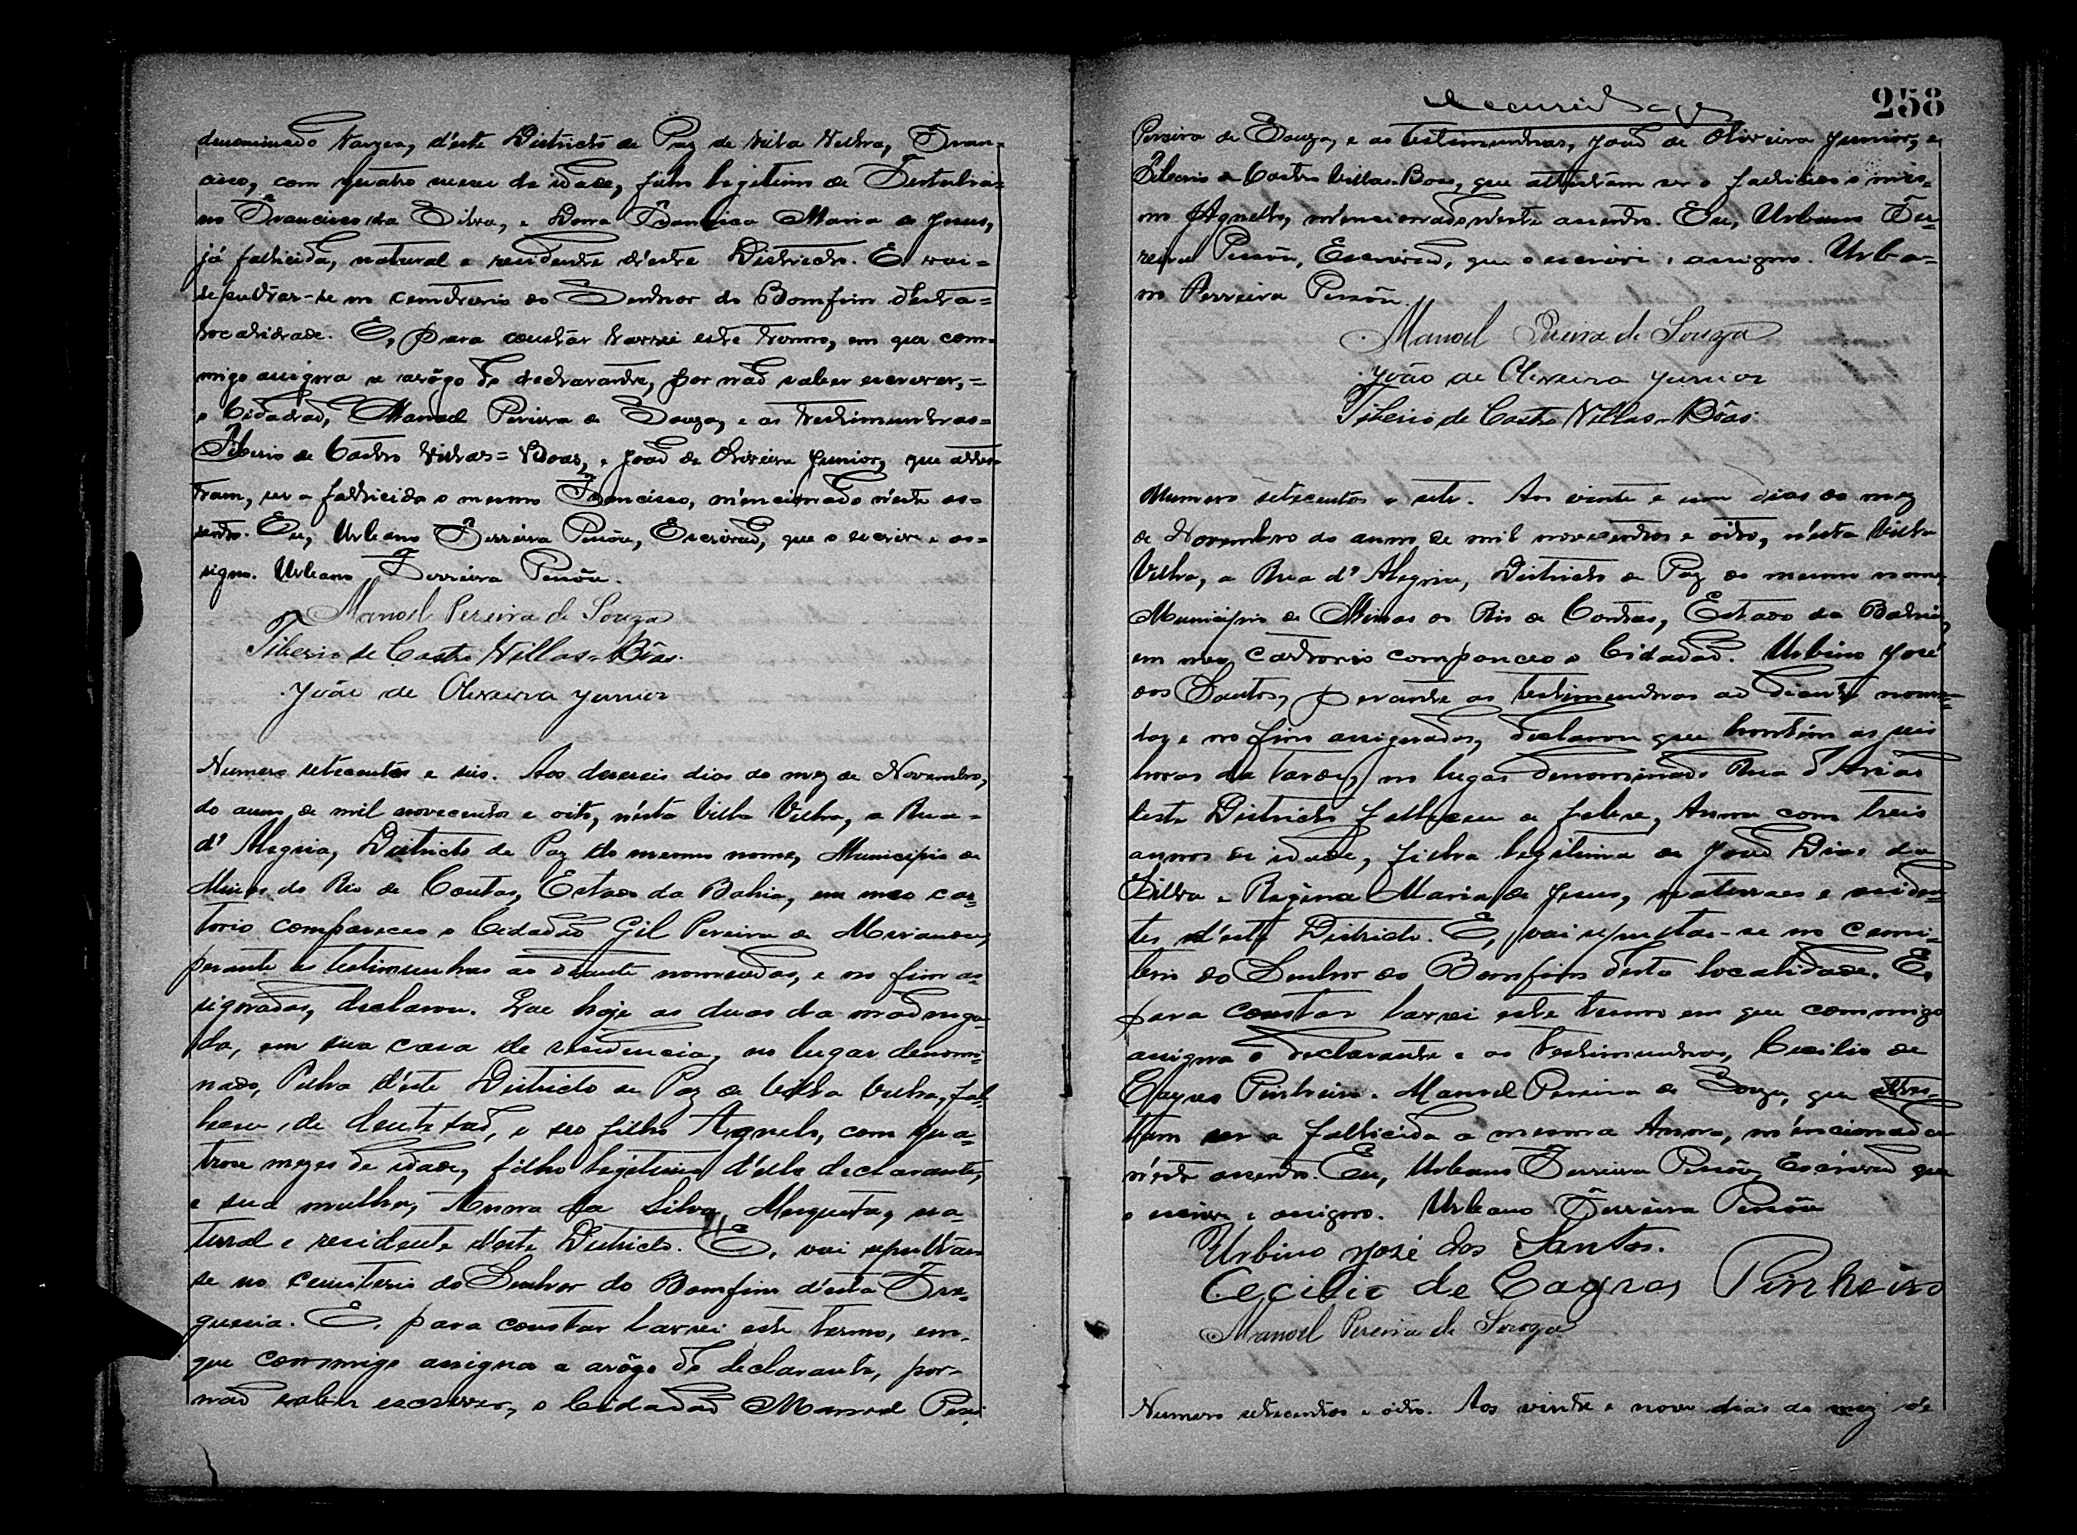 denominado Vargea, d'este Districto de Paz de Villa Velha, Fran-
cisco, com quatro mezes de idade, filho legitimo de
no Francisco da Silva, e Dona Francisca Maria de Jesus,
já fallecida, natural e residente d'este Districto. E vai-
sepultar-se no cemiterio do Senhor do Bomfim desta=
localidade. E, para constar lavrei este termo, em que com-
migo assigna a arôgo do declarante, por não saber escrever,=
o Cidadão, Manoel Pereira de Souza, e as testimunhas=
Tiberio de Castro Villas=Boas, e João de Oliveira Junior, que attes-
tam, ser o fallicido o mesmo Francisco, mencionado n'este as-
sento. Eu, Urbano Ferreira Pessôa, Escrivão, que o escrivi e as=
signo. Urbano Ferreira Pessôa.
Manoel Pereira de Souza
Tiberio de Castro Villas-Bôas.
João de Oliveira Junior
Numero setecentos e seis. Aos deseseis dias do mez de Novembro,
do anno, de mil novecentos e oito, n'ésta Villa Velha, a Rua-
d'Alegria, Districto de Paz do mesmo nome, Municipio de
Minas do Rio de Contas, Estado da Bahia, em meo car-
torio compareceo o Cidadão Gil Pereira de
perante as testimunhas ao diante nomeadas, e no fim as-
signadas, declarou. Que hoje as duas da madruga-
da, em sua casa de residencia, no lugar denomi-
nado, d'este Districto de Paz de Villa Velha, fal-
leceu, de o seo filho Agnelo, com qua-
trou mezes de idade, filho legitimo d'elle declarante,
e sua mulher, Anna da Silva na-
tural e residente d'este Districto. E, vai sepultar-
se no cemiterio do Senhor do Bomfim d'ésta Fre-
guesia. E, para constar lavrei este termo, em-
que commigo assigna a arôgo do declarante, por-
não saber escrever, o Cidadão Manoel Perei
258
Pereira de Souza, e as testimunhas, João de Oliveira Junior, e
Tiberio de Castro Villas-Boas, que attestam ser o fallicido o mes-
mo Agnello, mencionado n'este assento. Eu, Urbano Fer-
reira Pessôa, Escrivão, que o escrivi e assigno. Urba-
no Ferreira Pessôa.
Manoel Pereira de Souza
João de Oliveira Junior
Tiberio de Castro Villas-Bôas.
Numero setecentos e sete. Aos vinte e um dias do mez
de Novembro do anno de mil novecentos e oito, n'ésta Villa
Velha, a Rua d'Alegria, Districto de Paz do mesmo nome
Municipio de Minas do Rio de Contas, Estado da Bahia,
em meo cartorio compareceo o Cidadão. Urbino José
dos Santos, perante as testimunhas ao diante nomea-
das e no fim assignadas, declarou que hontem as seis
horas da tarde, no lugar denominado Rua d'Arias
deste Districto falleceu de febre, Anna com treis
annos de idade, filha legitima de João Dias da
Silva e Regina Maria de Jesus, naturaes e residen-
tes, d'este Districto. E, vai sepultar-se no cemi-
terio do Senhor do Bomfim desta localidade. E,
para constar lavrei este termo em que commigo
assigna o declarante e as testimunhas, Cecilio de
Pinheiro. Manoel Pereira de Souza, que attes-
tam ser a fallicida a mesma Anna, mencionada
n'este assento. Eu, Urbano Ferreira Pessôa, Escrivão que
o escrivi e assigno. Urbano Ferreira Pessôa
Urbino José dos Santos.
Cecilio de Pinheiro
Manoel Pereira de Souza
Numero setecentos e oito. Aos vinte e nove dias do mez de